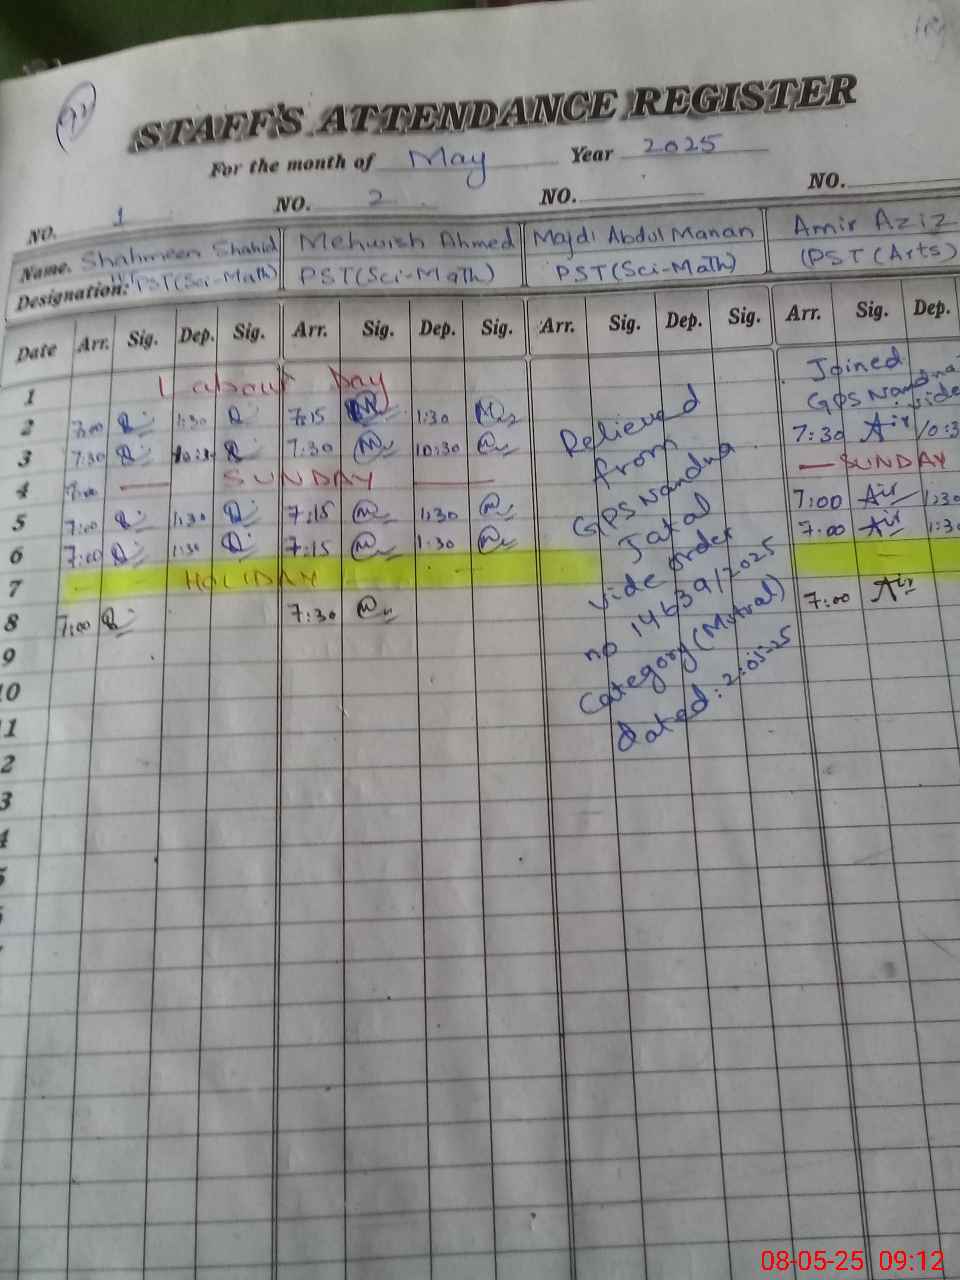 STAFF'S ATTENDANCE REGISTER
For the month of May Year 2025
NO. 1 NO. 2 NO. NO.
Name. Shahmeen Shahid Mehwish Ahmed Majdi Abdul Manan Amir Aziz
Designation: PST (Sci-Math) PST (Sci-Math) PST (Sci-Math) (PST (Arts)
Date Arr. Sig. Dep. Sig. Arr. Sig. Dep. Sig. Arr. Sig. Dep. Sig. Arr. Sig. Dep.
1 Labour Day Joined
GPS Nandna
vide
2 7:00 1:30 7:15 1:30
3 7:30 10:30 7:30 10:30 7:30 10:3
4 7:00 SUNDAY SUNDAY
5 7:00 1:30 7:15 1:30 7:00 1:30
6 7:00 1:30 7:15 1:30 7:00 1:30
7 HOLIDAY
8 7:00 7:30 7:00
Relieved
from
GPS Nandna
Jatal
vide order
no 14639/2025
Category (Mutual)
dated: 2-05-25
9
10
11
2
3
4
5
08-05-25 09:12